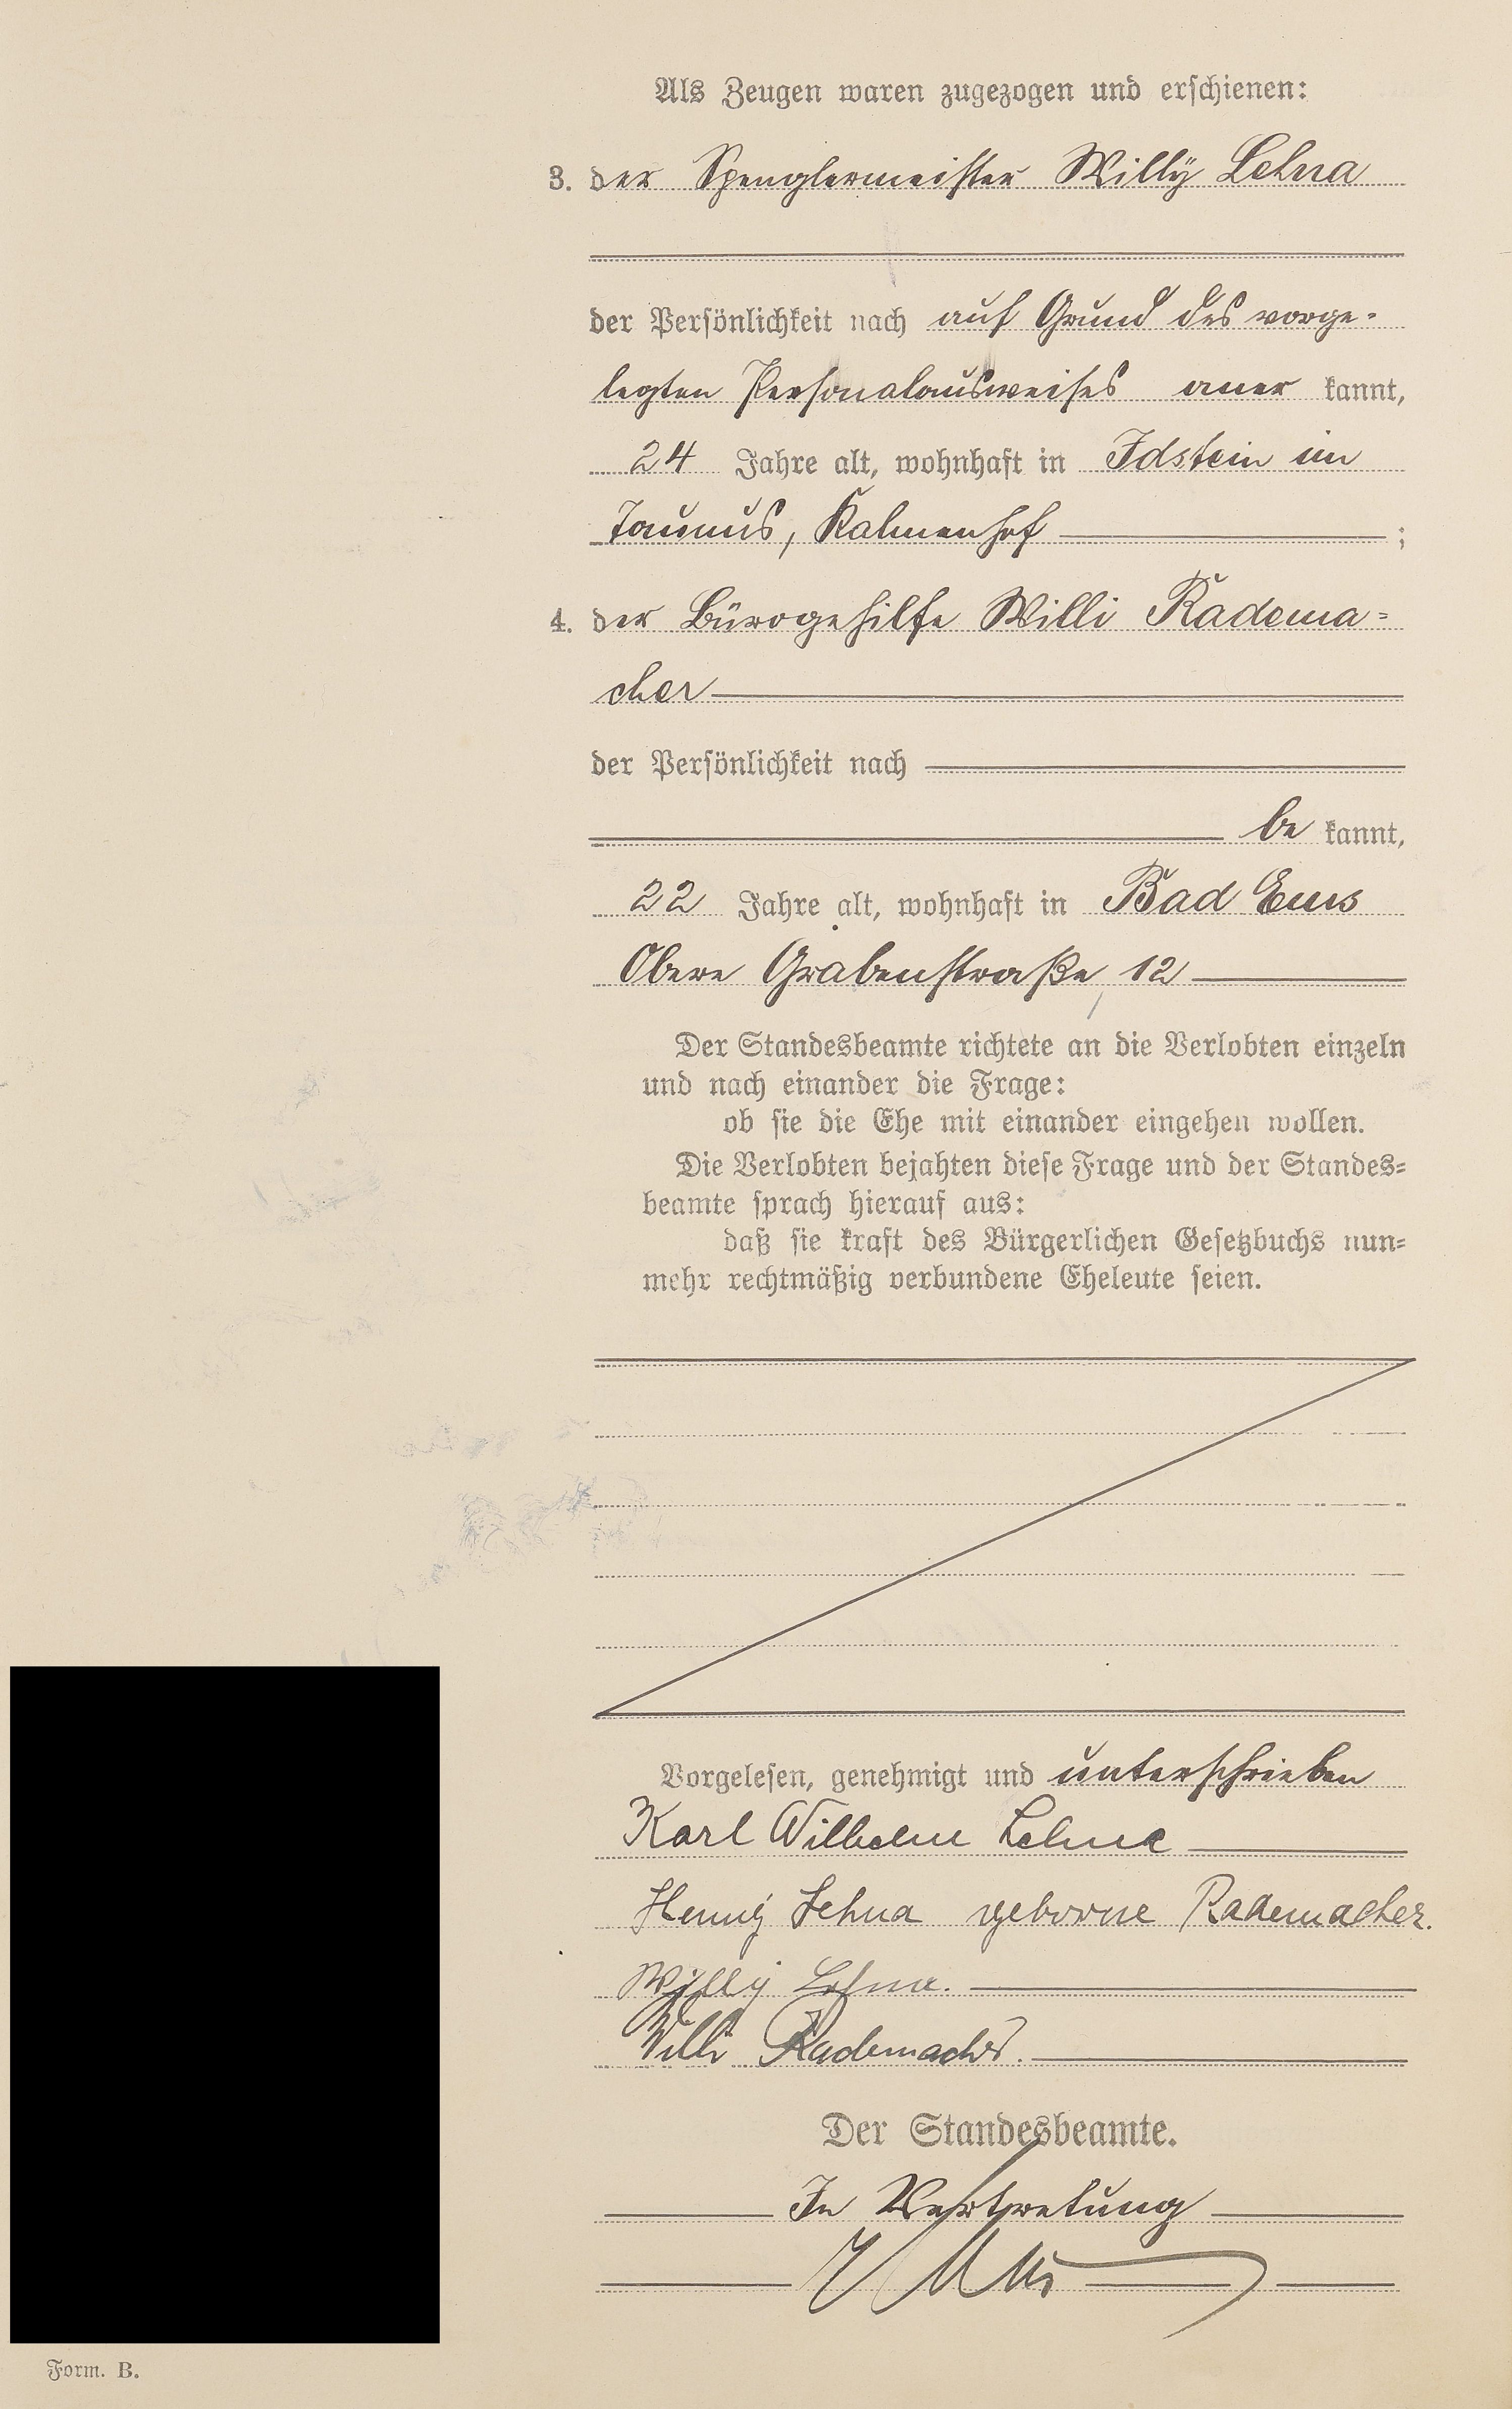 Als Zeugen waren zugezogen und erschienen:
3. der Spenglermeister Willy Lehna
der Persönlichkeit nach auf Grund des vorge-
legten Personalausweises aner kannt,
24 Jahre alt, wohnhaft in Idstein im
Taunus, Kalmenhof ;
4. der Bürogehilfe Willi Radema=
cher
der Persönlichkeit nach
be kannt,
22 Jahre alt, wohnhaft in Bad Ems
Obere Grabenstraße, 12
Der Standesbeamte richtete an die Verlobten einzeln
und nach einander die Frage:
ob sie die Ehe mit einander eingehen wollen.
Die Verlobten bejahten diese Frage und der Standes=
beamte sprach hierauf aus:
daß sie kraft des Bürgerlichen Gesetzbuchs nun=
mehr rechtmäßig verbundene Eheleute seien.
Vorgelesen, genehmigt und unterschrieben
Karl Wilhelm Lehna
Henny Lehna geborne Rademacher.
Willy Lehna.
Willi Rademacher.
Der Standesbeamte.
In Vertretung
Form. B.